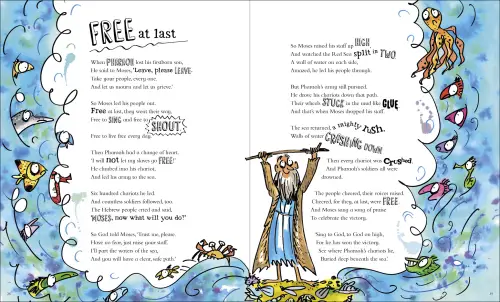 FREE at last
When PHARAOH lost his firstborn son,
He said to Moses, 'Leave, please LEAVE.
Take your people, every one.
And let us mourn and let us grieve.'
So Moses led his people out,
Free at last, they went their way,
Free to SING and free to SHOUT,
Free to live free every day.
Then Pharaoh had a change of heart.
'I will not let my slaves go FREE!'
He climbed into his chariot,
And led his army to the sea.
Six hundred chariots he led,
And countless soldiers followed, too.
The Hebrew people cried and said,
'MOSES, now what will you do?'
So God told Moses, 'Trust me, please.
Have no fear, just raise your staff.
I'll part the waters of the sea,
And you will have a clear, safe path.'
So Moses raised his staff up HIGH,
And watched the Red Sea split in TWO.
A wall of water on each side,
Amazed, he led his people through.
But Pharaoh's army still pursued.
He drove his chariots down that path.
Their wheels STUCK in the mud like GLUE
And that's when Moses dropped his staff.
The sea returned, a mighty hush,
Walls of water CRASHING DOWN
Then every chariot was Crushed,
And Pharaoh's soldiers all were
drowned.
The people cheered, their voices raised.
Cheered, for they, at last, were FREE
And Moses sang a song of praise
To celebrate the victory.
'Sing to God, to God on high,
For he has won the victory.
See where Pharaoh's chariots lie,
Buried deep beneath the sea.'